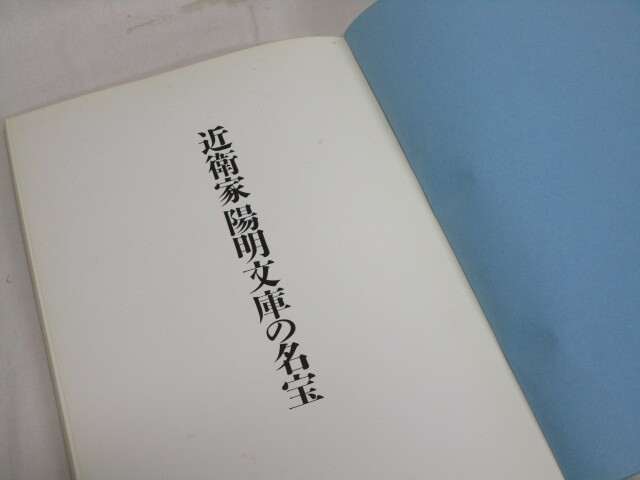 近衛家 陽明文庫の名宝